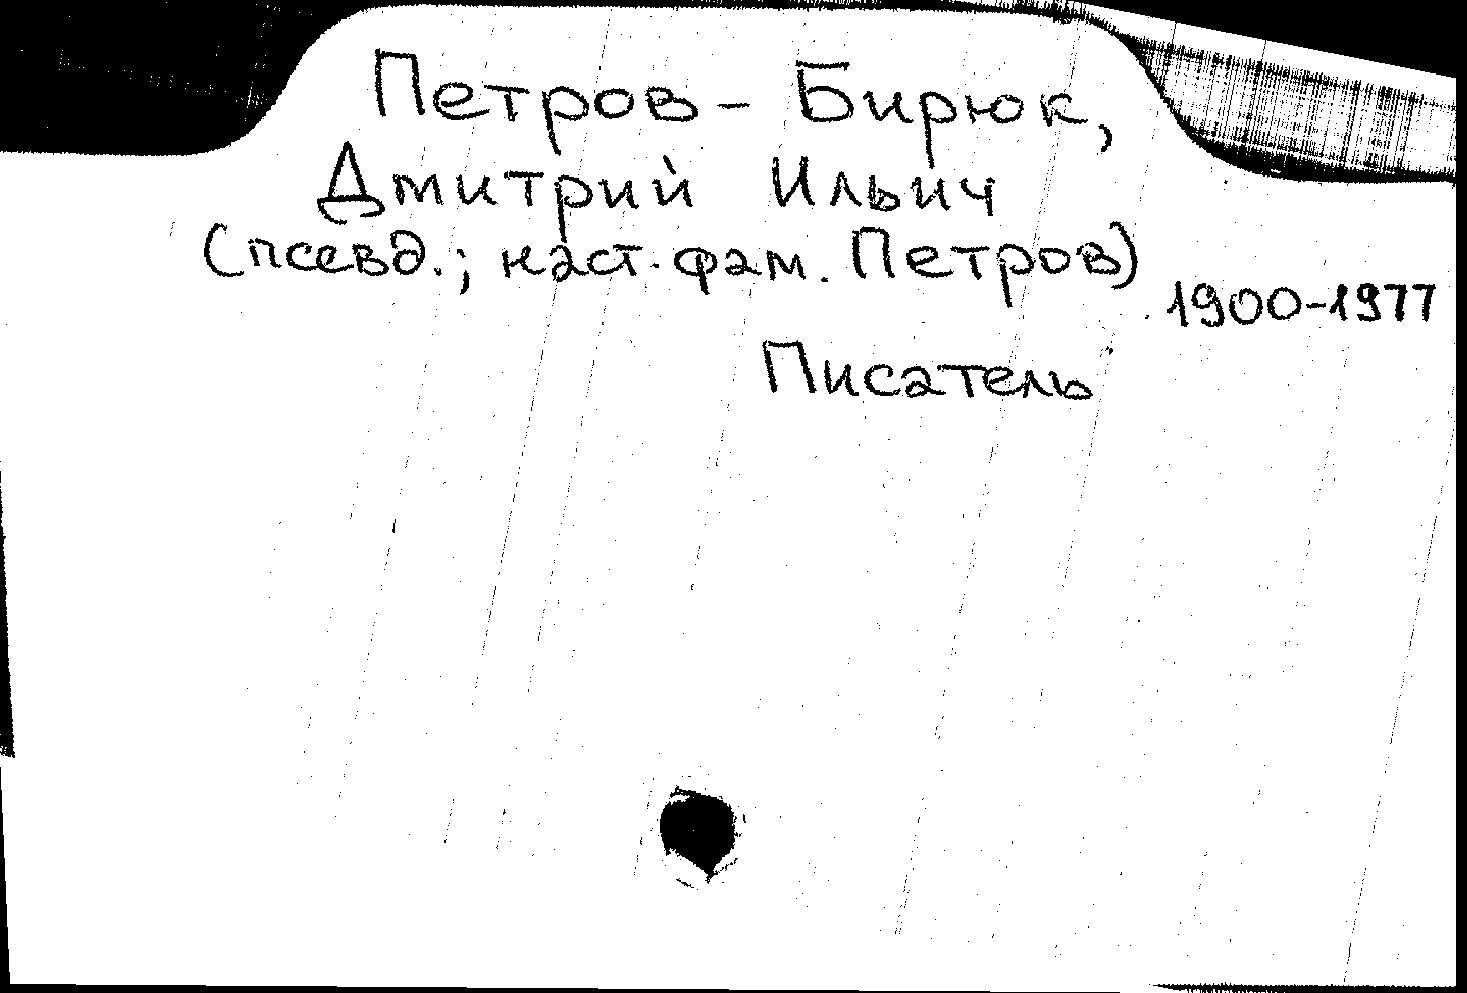 Петров - Бирюк,
Дмитрий Ильич
(псевд.; наст. фам. Петров)
1900-1977
Писатель